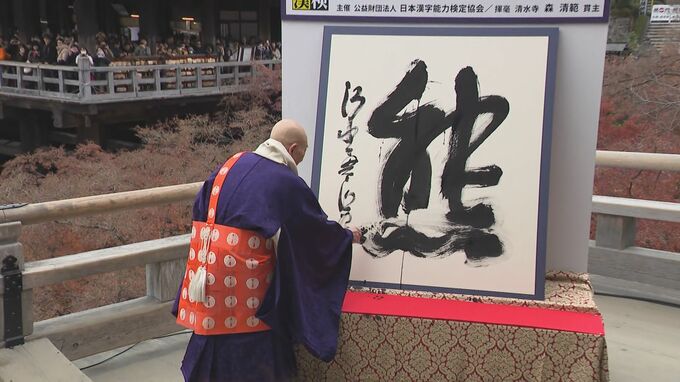 漢検
主催 公益財団法人 日本漢字能力検定協会／揮毫 清水寺 森 清範 貫主
熊